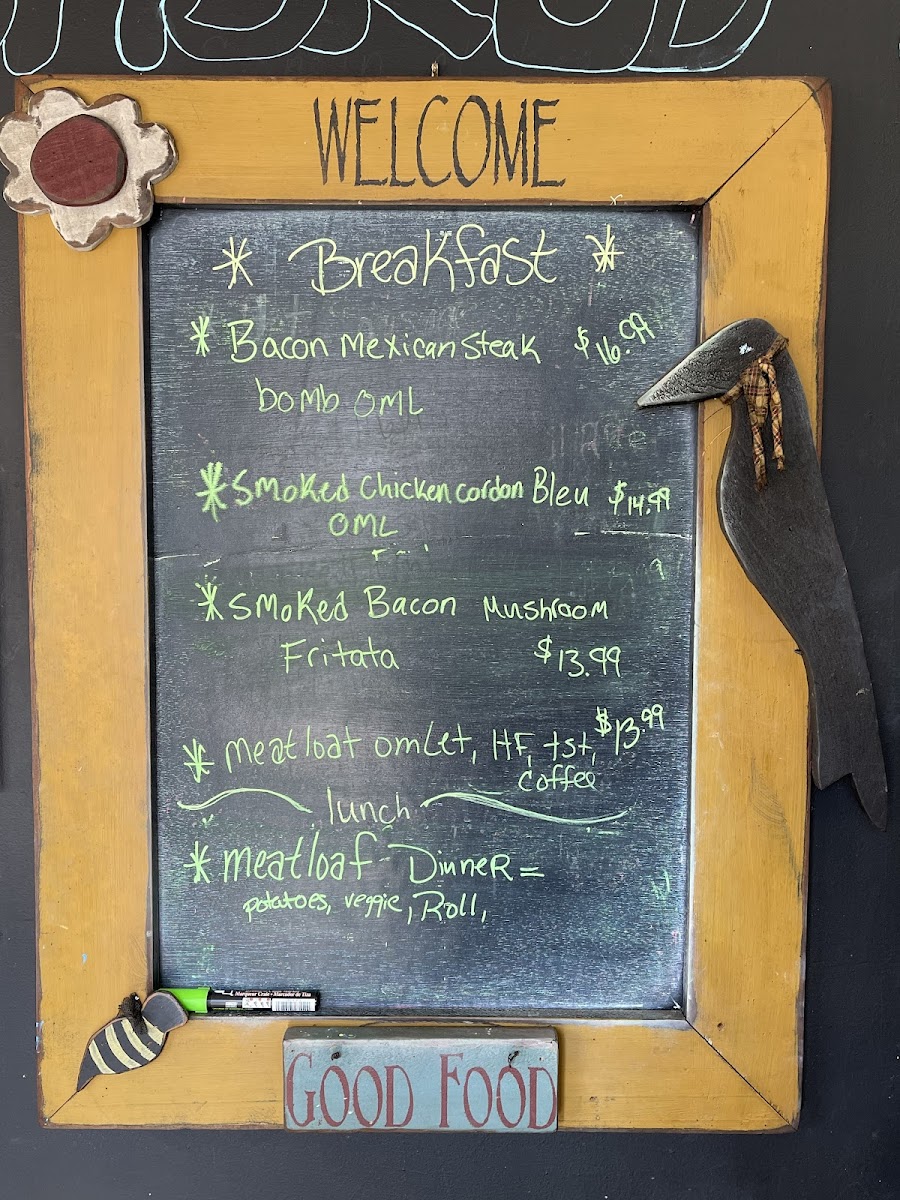 WELCOME
* Breakfast *
* Bacon Mexican Steak $16.99
bomb OML
* Smoked Chicken cordon Bleu $14.99
OML
* Smoked Bacon Mushroom
Fritata $13.99
* meatloat omLet, HF, tst, $13.99
coffee
lunch
* meatloaf Dinner =
potatoes, veggie, Roll,
GOOD FOOD